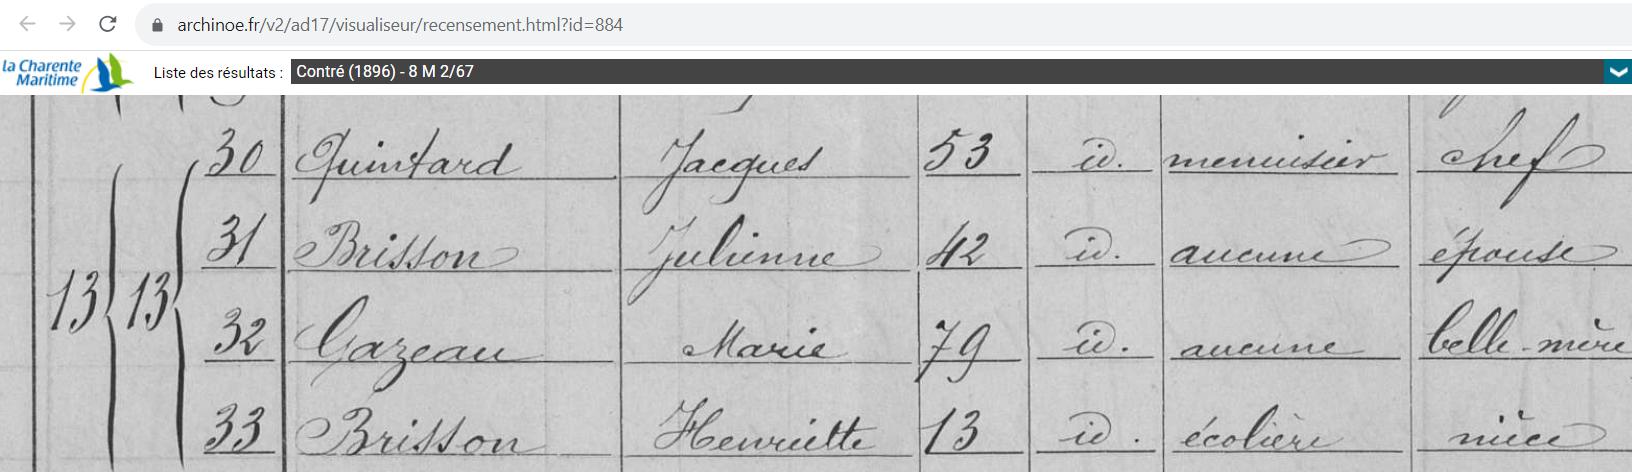 archinoe.fr/v2/ad17/visualiseur/recensement.html?id=884
la Charente
Maritime
Liste des résultats : Contré (1896) - 8 M 2/67
30 Quintard Jacques 53 id. menuisier chef
31 Brisson Julienne 42 id. aucune épouse
13 13
32 Gazeau Marie 79 id. aucune belle-mère
33 Brisson Henriette 13 id. écolière nièce